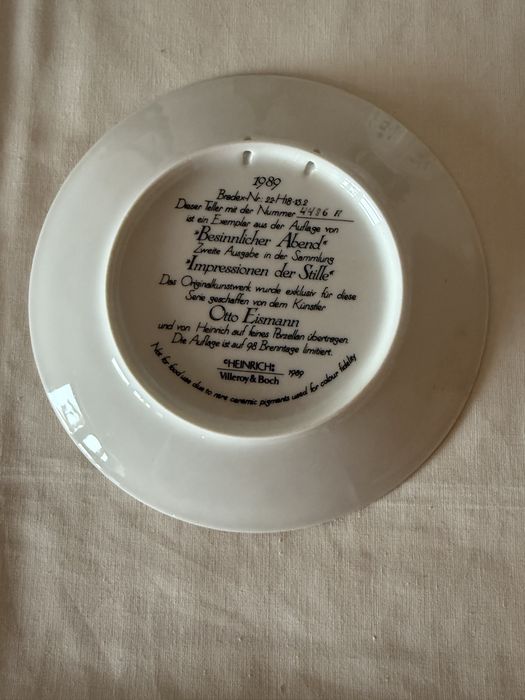 1989
Bradex-Nr.: 22-H18-15.2
Dieser Teller mit der Nummer 4486 A
ist ein Exemplar aus der Auflage von
»Besinnlicher Abend«
Zweite Ausgabe in der Sammlung
»Impressionen der Stille«
Das Originalkunstwerk wurde exklusiv für diese
Serie geschaffen von dem Künstler
Otto Eismann
und von Heinrich auf feines Porzellan übertragen.
Die Auflage ist auf 98 Brenntage limitiert.
©HEINRICH
Villeroy & Boch
1989
Not for food use due to rare ceramic pigments used for colour fidelity